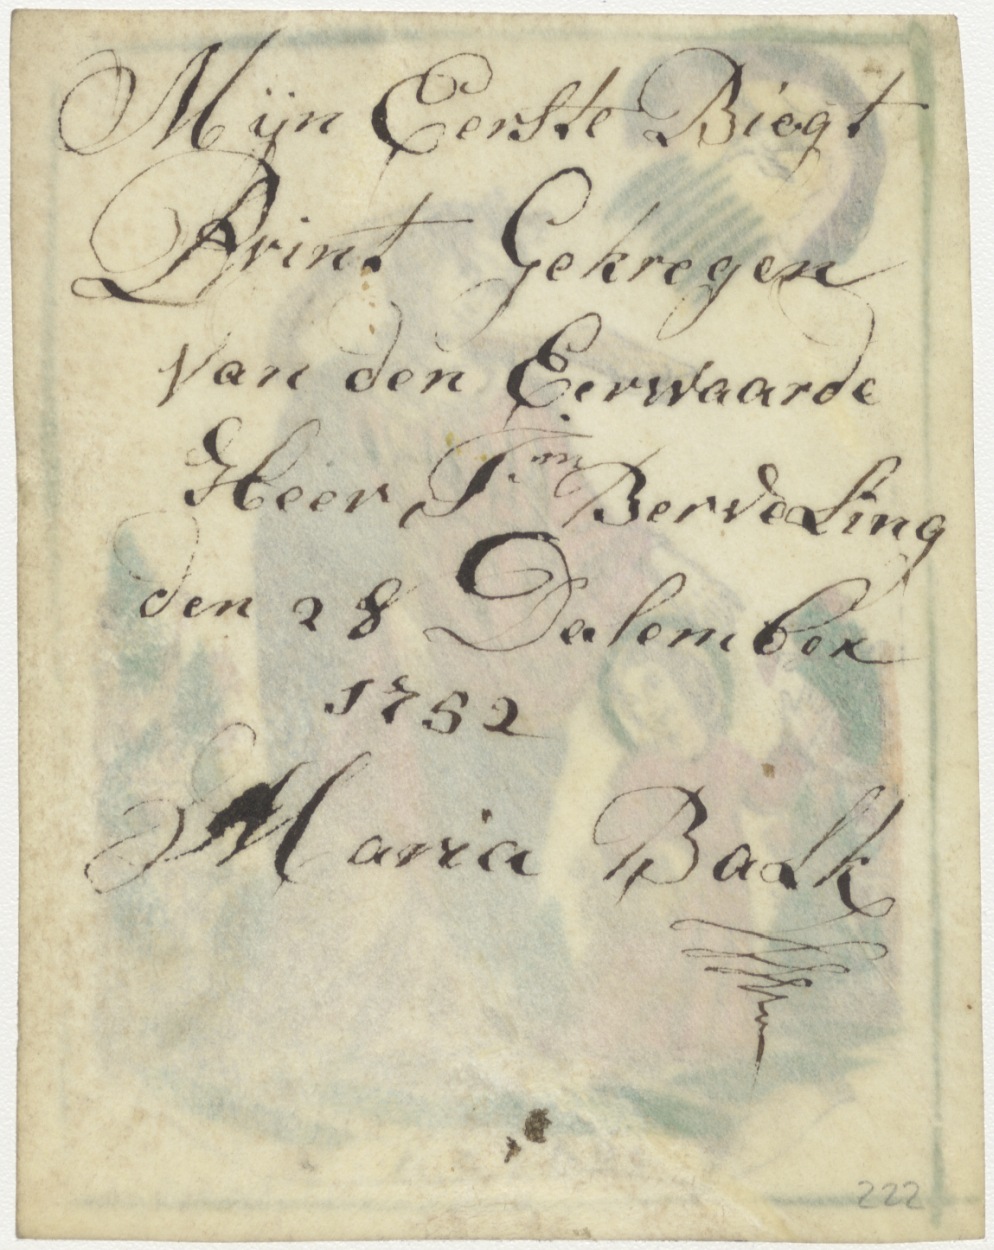 Mijn Eerste Biegt
Print Gekregen
van den Eerwaarde
Heer J.m Berveling
den 28 December
1752
Maria Balk
222